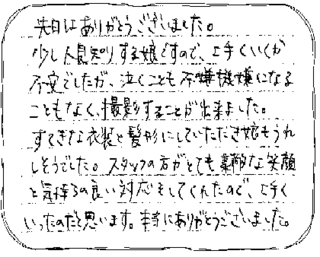 先日はありがとうございました。
少し人見知りする娘ですので、上手くいくか
不安でしたが、泣くことも不嫌機嫌になる
こともなく、撮影することが出来ました。
すてきな衣装と髪形にしていただき娘もうれ
しそうでした。スタッフの方がとても素敵な笑顔
と気持ちの良い対応をしてくれたので、上手く
いったのだと思います。本当にありがとうございました。